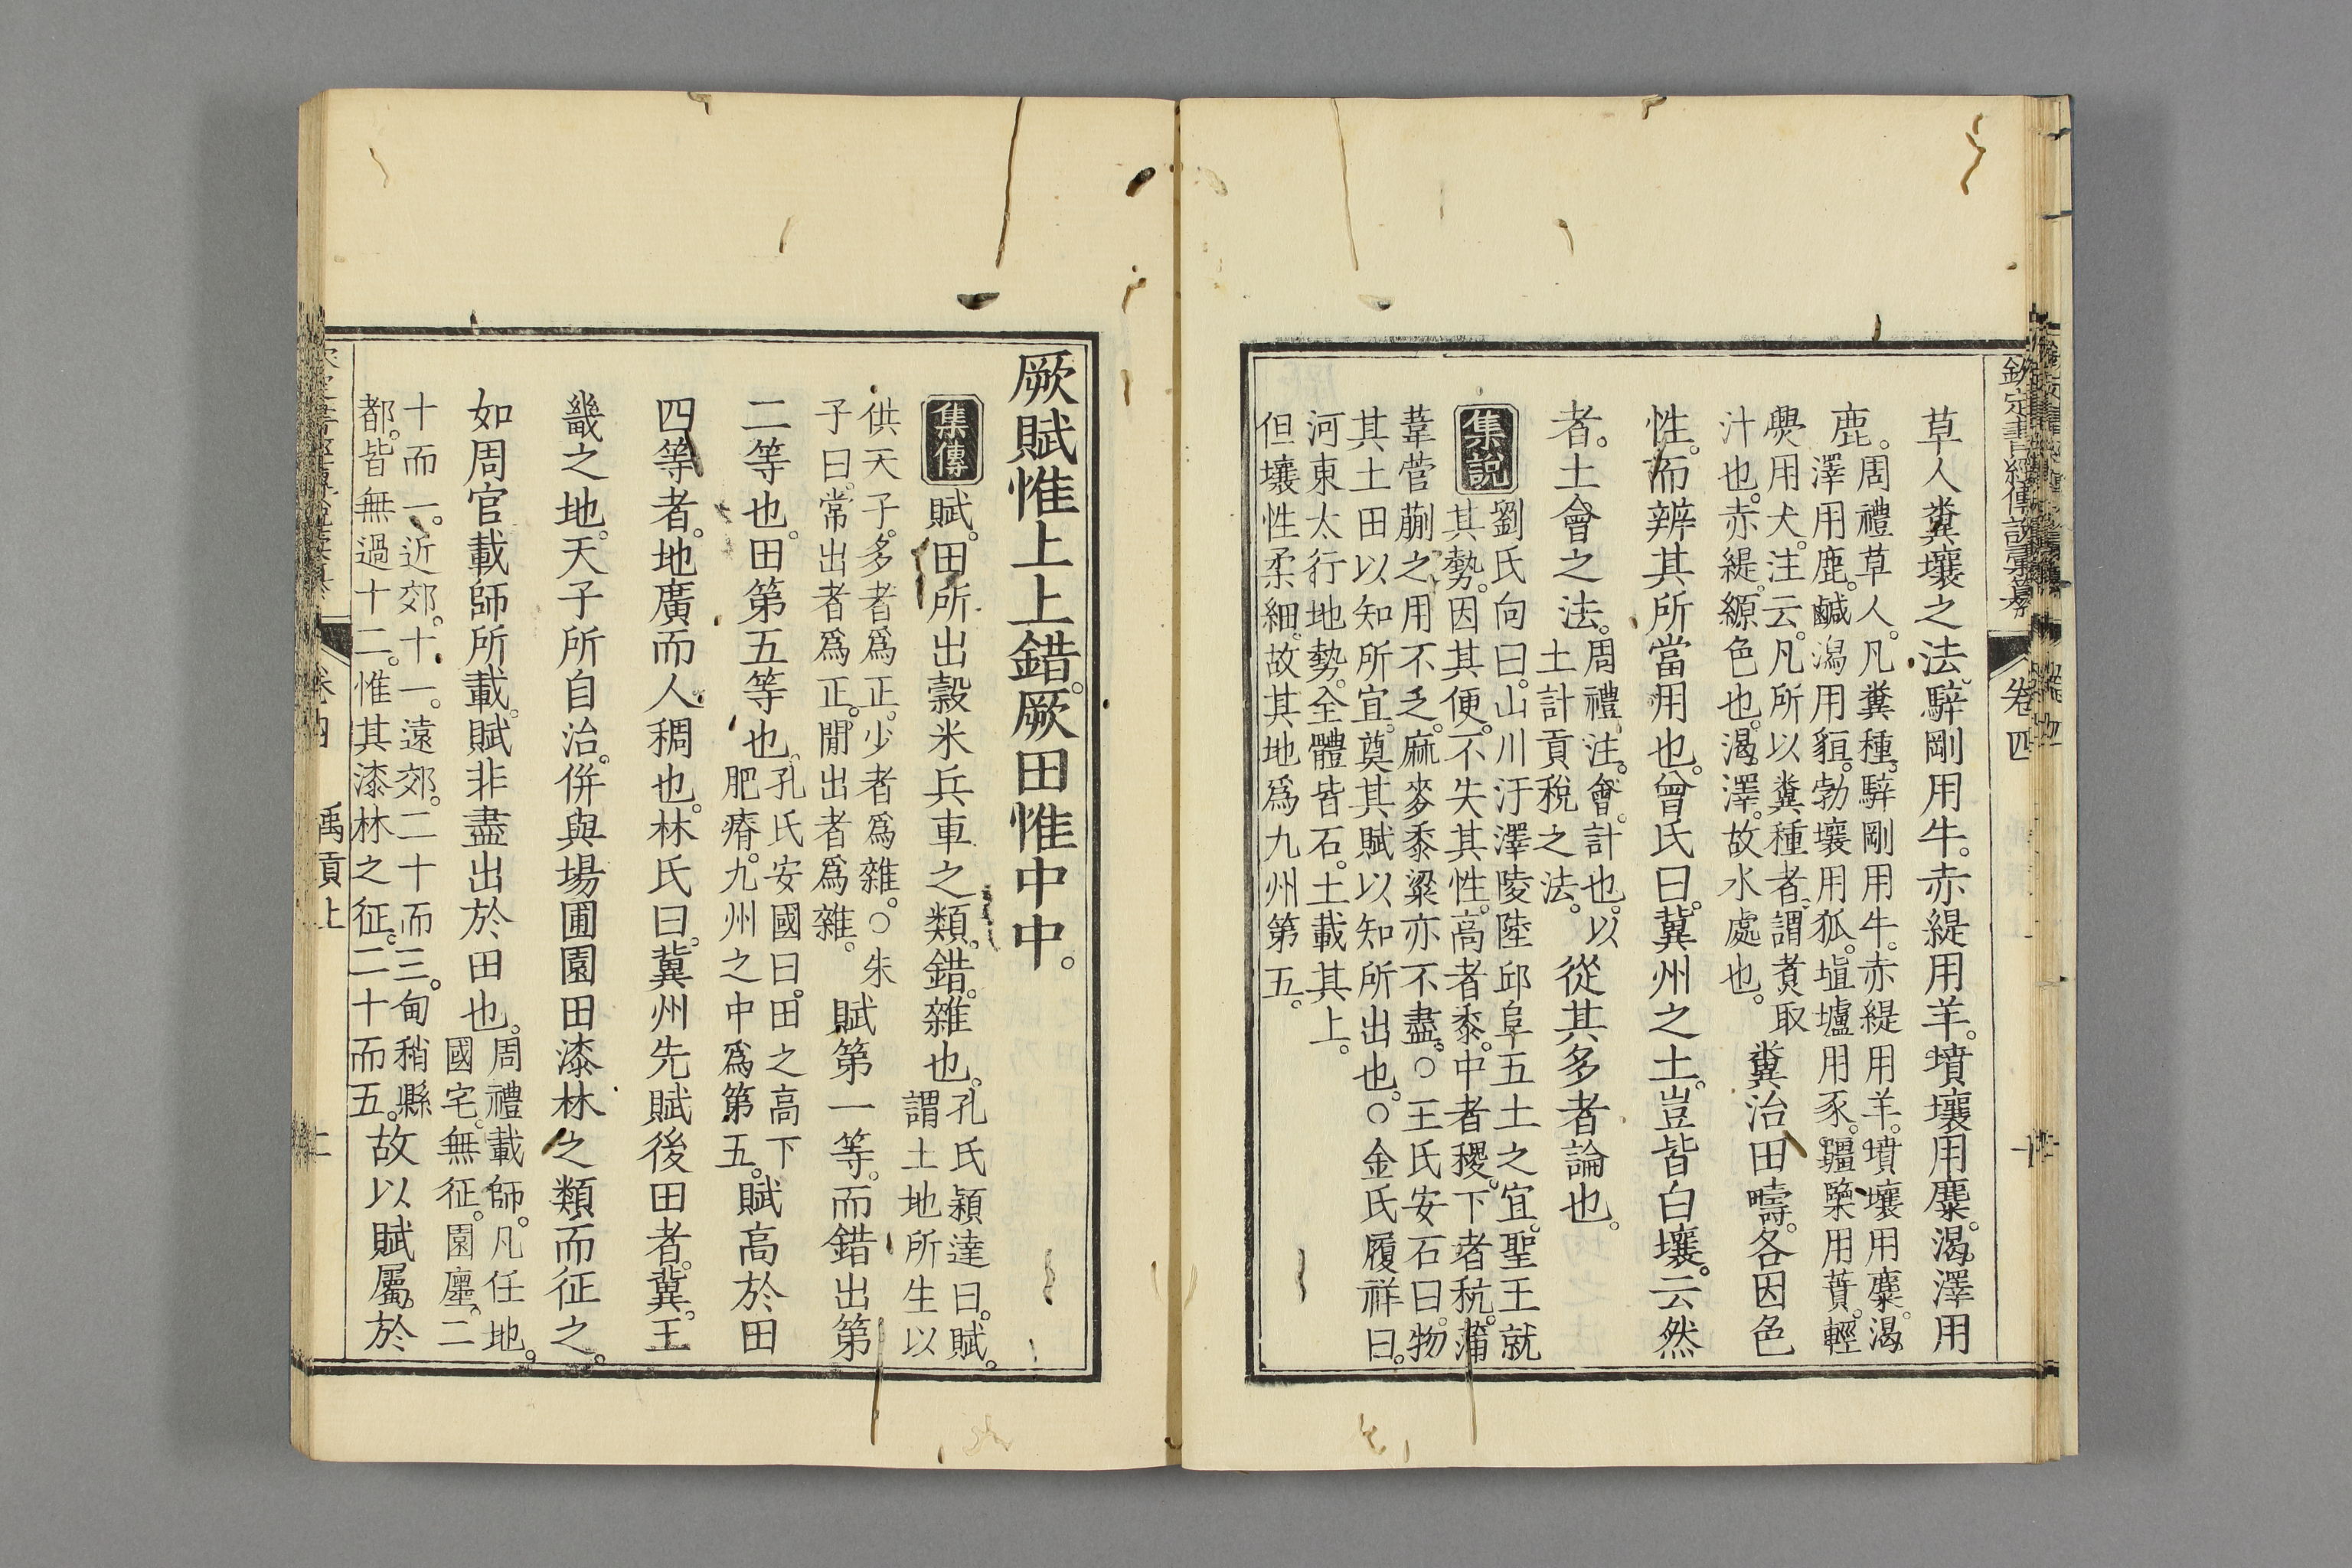 欽定書經傳說彙纂 卷四 十
草人糞壤之法。騂剛用牛。赤緹用羊。墳壤用麋。渴澤用
鹿。周禮草人。凡糞種。騂剛用牛。赤緹用羊。墳壤用麋。渴
澤用鹿。鹹潟用貆。勃壤用狐。埴壚用豕。彊㯺用蕡。輕
㶾用犬。注云。凡所以糞種者。謂煑取
汁也。赤緹。縓色也。渴澤。故水處也。糞治田疇。各因色
性。而辨其所當用也。曾氏曰。冀州之土。豈皆白壤。云然
者。土會之法。周禮。注。會。計也。以
土計貢稅之法。從其多者論也。
集說 劉氏向曰。山川汙澤陵陸邱阜五土之宜。聖王就
其勢。因其便。不失其性。高者黍。中者稷。下者秔。蒲
葦菅蒯之用不乏。麻麥黍粱亦不盡。○王氏安石曰。物
其土田以知所宜。奠其賦以知所出也。○金氏履祥曰。
河東太行地勢。全體皆石。土載其上。
但壤性柔細。故其地爲九州第五。
厥賦惟上上錯。厥田惟中中。
集傳 賦。田所出穀米兵車之類。錯。雜也。孔氏穎達曰。賦。
謂土地所生以
供天子。多者爲正。少者爲雜。○朱
子曰。常出者爲正。閒出者爲雜。賦第一等。而錯出第
二等也。田第五等也。孔氏安國曰。田之高下
肥瘠。九州之中爲第五。賦高於田
四等者。地廣而人稠也。林氏曰。冀州先賦後田者。冀。王
畿之地。天子所自治。併與場圃園田漆林之類而征之。
如周官載師所載。賦非盡出於田也。周禮載師。凡任地。
國宅。無征。園廛。二
十而一。近郊。十一。遠郊。二十而三。甸稍縣
都。皆無過十二。惟其漆林之征。二十而五。故以賦屬於
禹貢上